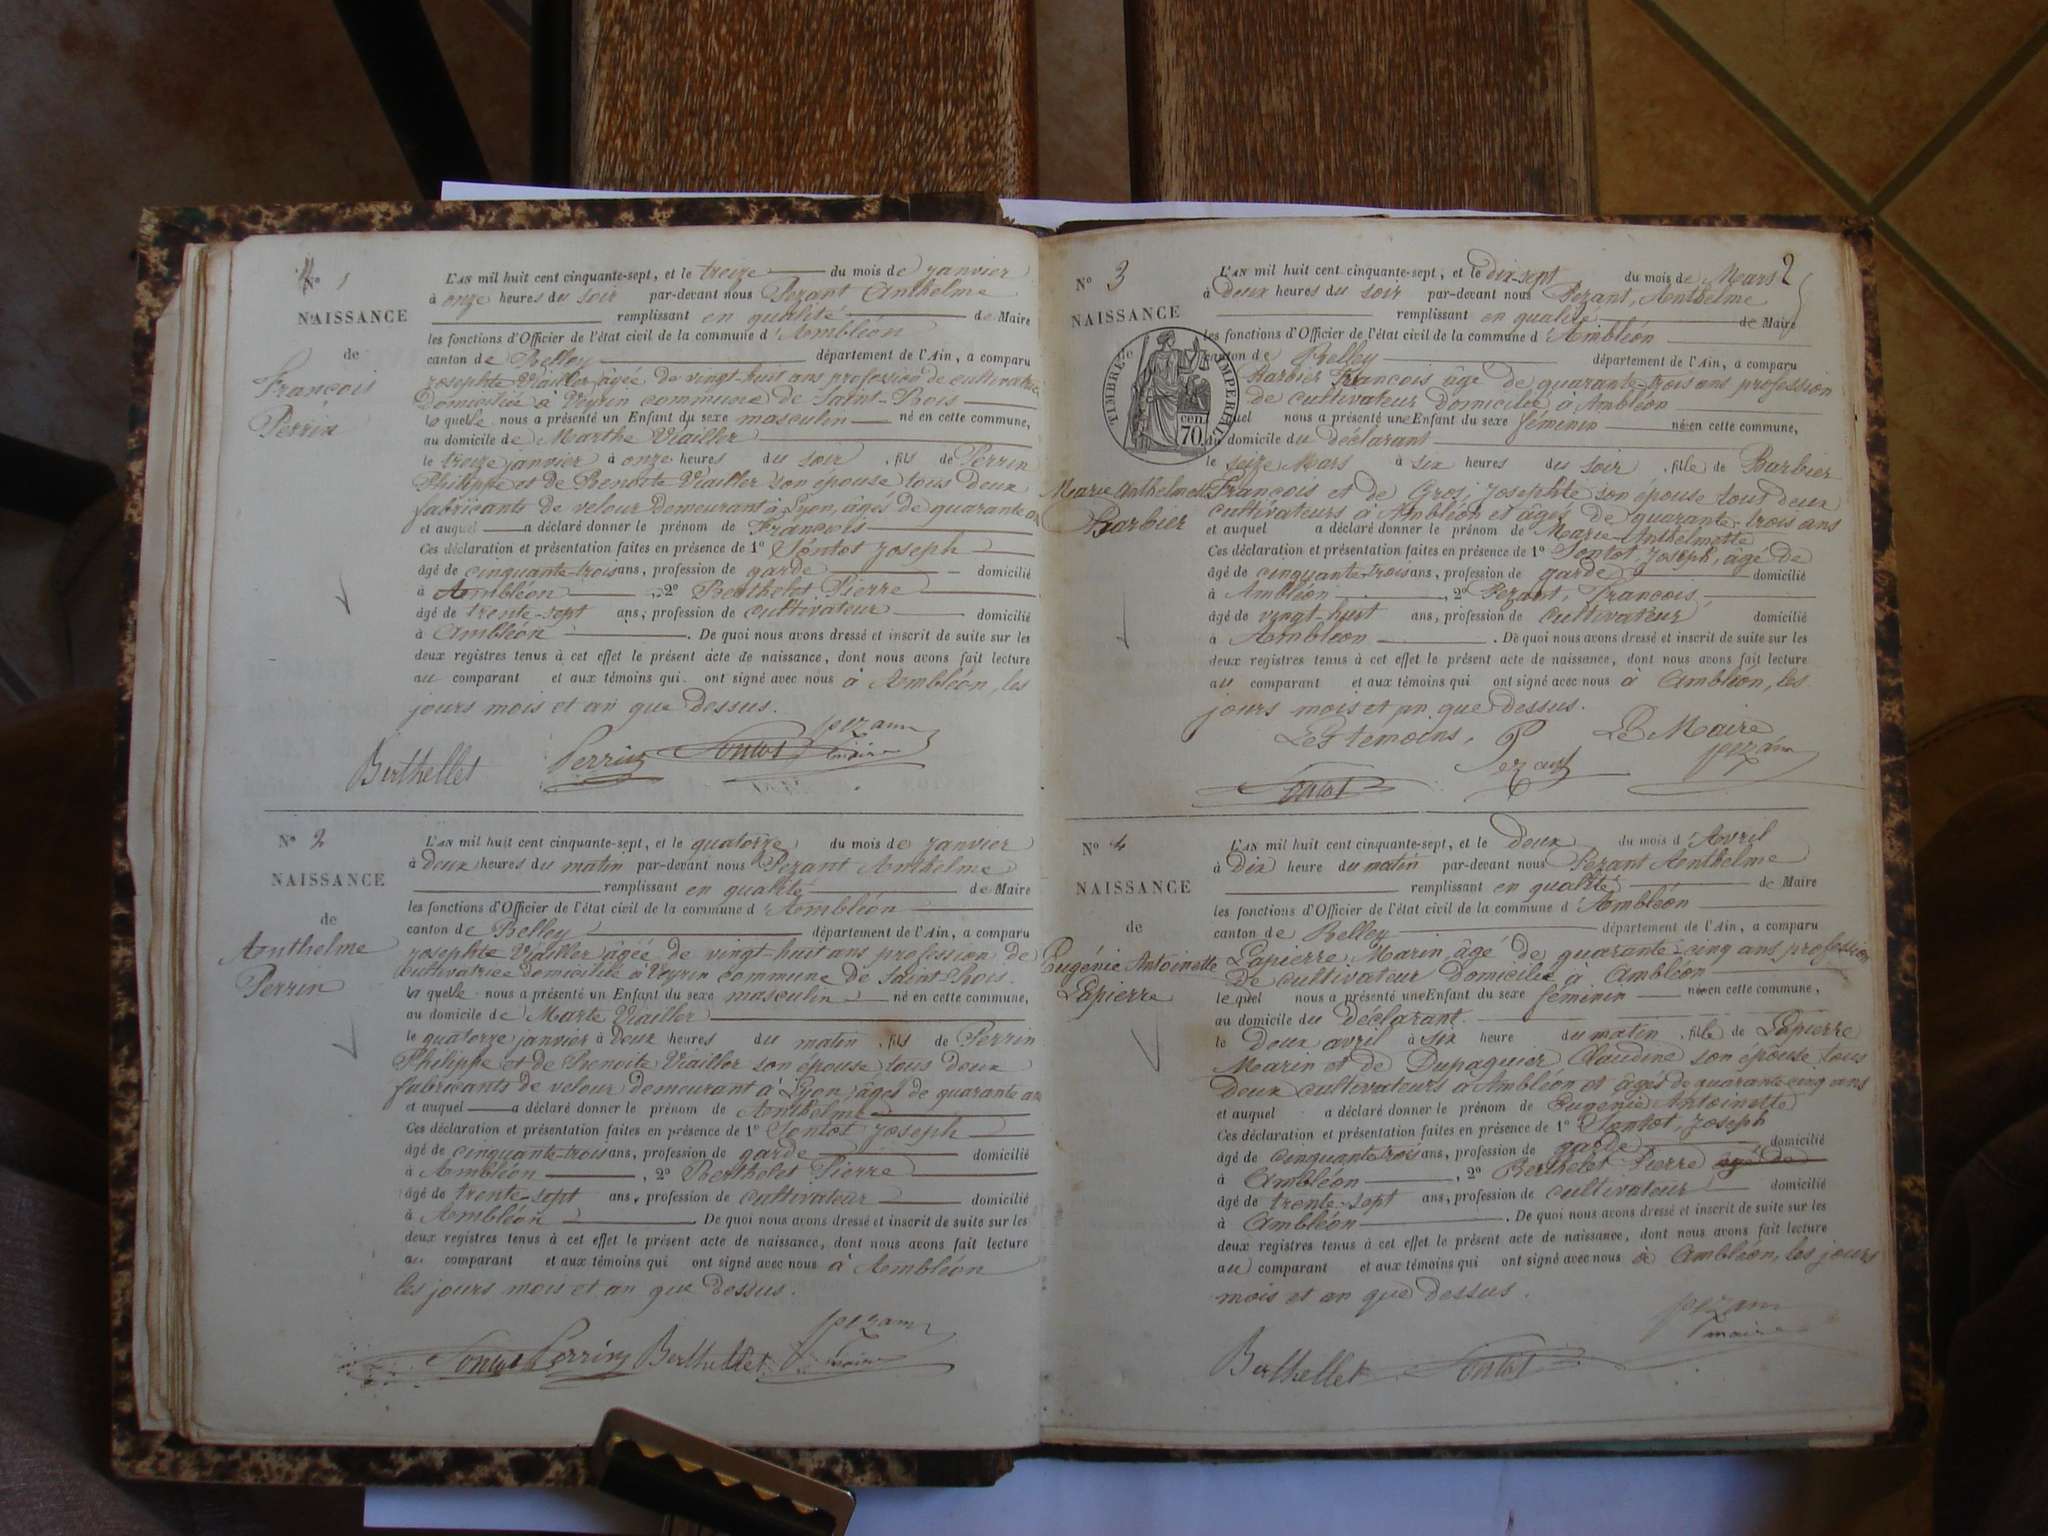 N° 1
NAISSANCE
de
François
Perrin
L'AN mil huit cent cinquante-sept, et le treize du mois de janvier
à onze heures du soir par-devant nous Pezant Anthelme
remplissant en qualité de Maire
les fonctions d'Officier de l'état civil de la commune d'Ambléon
canton de Belley département de l'Ain, a comparu
josephte Viailler âgée de vingt-huit ans profession de cultivatrice
Domiciliée à Veyrin commune de Saint-Bois
la quelle nous a présenté un Enfant du sexe masculin né en cette commune,
au domicile de Marthe Viailler
le treize janvier à onze heures du soir, fils de Perrin
Philippe et de Benoite Viailler son épouse tous deux
fabricants de velour demeurant à Lyon, âgés de quarante ans
et auquel a déclaré donner le prénom de François
Ces déclaration et présentation faites en présence de 1° Sontot Joseph
âgé de cinquante-trois ans, profession de garde domicilié
à Ambléon, 2° Berthelet Pierre
âgé de trente-sept ans, profession de cultivateur domicilié
à Ambléon. De quoi nous avons dressé et inscrit de suite sur les
deux registres tenus à cet effet le présent acte de naissance, dont nous avons fait lecture
au comparant et aux témoins qui ont signé avec nous à Ambléon, les
jours mois et an que dessus.
pezant
Berthellet Perrin Sontot maire
N° 2
NAISSANCE
de
Anthelme
Perrin
L'AN mil huit cent cinquante-sept, et le quatorze du mois de janvier
à deux heures du matin par-devant nous Pezant Anthelme
remplissant en qualité de Maire
les fonctions d'Officier de l'état civil de la commune d'Ambléon
canton de Belley département de l'Ain, a comparu
josephte Viailler âgée de vingt-huit ans profession de
cultivatrice domiciliée à Veyrin commune de Saint-Bois.
la quelle nous a présenté un Enfant du sexe masculin né en cette commune,
au domicile de Marte Viailler
le quatorze janvier à deux heures du matin, fils de Perrin
Philippe et de Benoite Viailler son épouse tous deux
fabricants de velour demeurant à Lyon, âgés de quarante ans
et auquel a déclaré donner le prénom de Anthelme
Ces déclaration et présentation faites en présence de 1° Sontot Joseph
âgé de cinquante-trois ans, profession de garde domicilié
à Ambléon, 2° Berthelet Pierre
âgé de trente-sept ans, profession de cultivateur domicilié
à Ambléon. De quoi nous avons dressé et inscrit de suite sur les
deux registres tenus à cet effet le présent acte de naissance, dont nous avons fait lecture
au comparant et aux témoins qui ont signé avec nous à Ambléon
les jours mois et an que dessus.
pezant
Sontot Perrin Berthellet maire
2
N° 3
NAISSANCE
TIMBRE IMPERIAL
70 cen.
Marie Anthelmette
Barbier
L'AN mil huit cent cinquante-sept, et le dix-sept du mois de Mars
à deux heures du soir par-devant nous Pezant, Anthelme
remplissant en qualité de Maire
les fonctions d'Officier de l'état civil de la commune d'Ambléon
canton de Belley département de l'Ain, a comparu
Barbier François âgé de quarante-trois ans profession
de cultivateur domicilié à Ambléon
quel nous a présenté une Enfant du sexe féminin née en cette commune,
du domicile du déclarant
le seize Mars à six heures du soir, fille de Barbier
François et de Gros, josephte son épouse tous deux
cultivateurs à Ambléon et âgés de quarante-trois ans
et auquel a déclaré donner le prénom de Marie-Anthelmette
Ces déclaration et présentation faites en présence de 1° Sontot Joseph, âgé de
âgé de cinquante-trois ans, profession de garde domicilié
à Ambléon, 2° Pezant, François
âgé de vingt-huit ans, profession de cultivateur domicilié
à Ambléon. De quoi nous avons dressé et inscrit de suite sur les
deux registres tenus à cet effet le présent acte de naissance, dont nous avons fait lecture
au comparant et aux témoins qui ont signé avec nous à Ambléon, les
jours mois et an que dessus.
Les temoins, P Le Maire
Pezant pezant
Sontot
N° 4
NAISSANCE
de
Eugénie Antoinette
Lapierre
L'AN mil huit cent cinquante-sept, et le deux du mois d'Avril
à dix heure du matin par-devant nous Pezant Anthelme
remplissant en qualité de Maire
les fonctions d'Officier de l'état civil de la commune d'Ambléon
canton de Belley département de l'Ain, a comparu
Lapierre Marin, âgé de quarante-cinq ans profession
de cultivateur domicilié à Ambléon
le quel nous a présenté une Enfant du sexe féminin née en cette commune,
au domicile du déclarant.
le deux avril à six heure du matin, fille de Lapierre
Marin et de Dupaquier Claudine son épouse tous
deux cultivateurs à Ambléon et âgés de quarante-cinq ans
et auquel a déclaré donner le prénom de Eugénie Antoinette
Ces déclaration et présentation faites en présence de 1° Sontot, Joseph
âgé de cinquante trois ans, profession de garde domicilié
à Ambléon, 2° Berthelet Pierre âgé de
âgé de trente-sept ans, profession de cultivateur domicilié
à Ambléon. De quoi nous avons dressé et inscrit de suite sur les
deux registres tenus à cet effet le présent acte de naissance, dont nous avons fait lecture
au comparant et aux témoins qui ont signé avec nous à Ambléon, les jours
mois et an que dessus.
pezant
maire
Berthellet Sontot